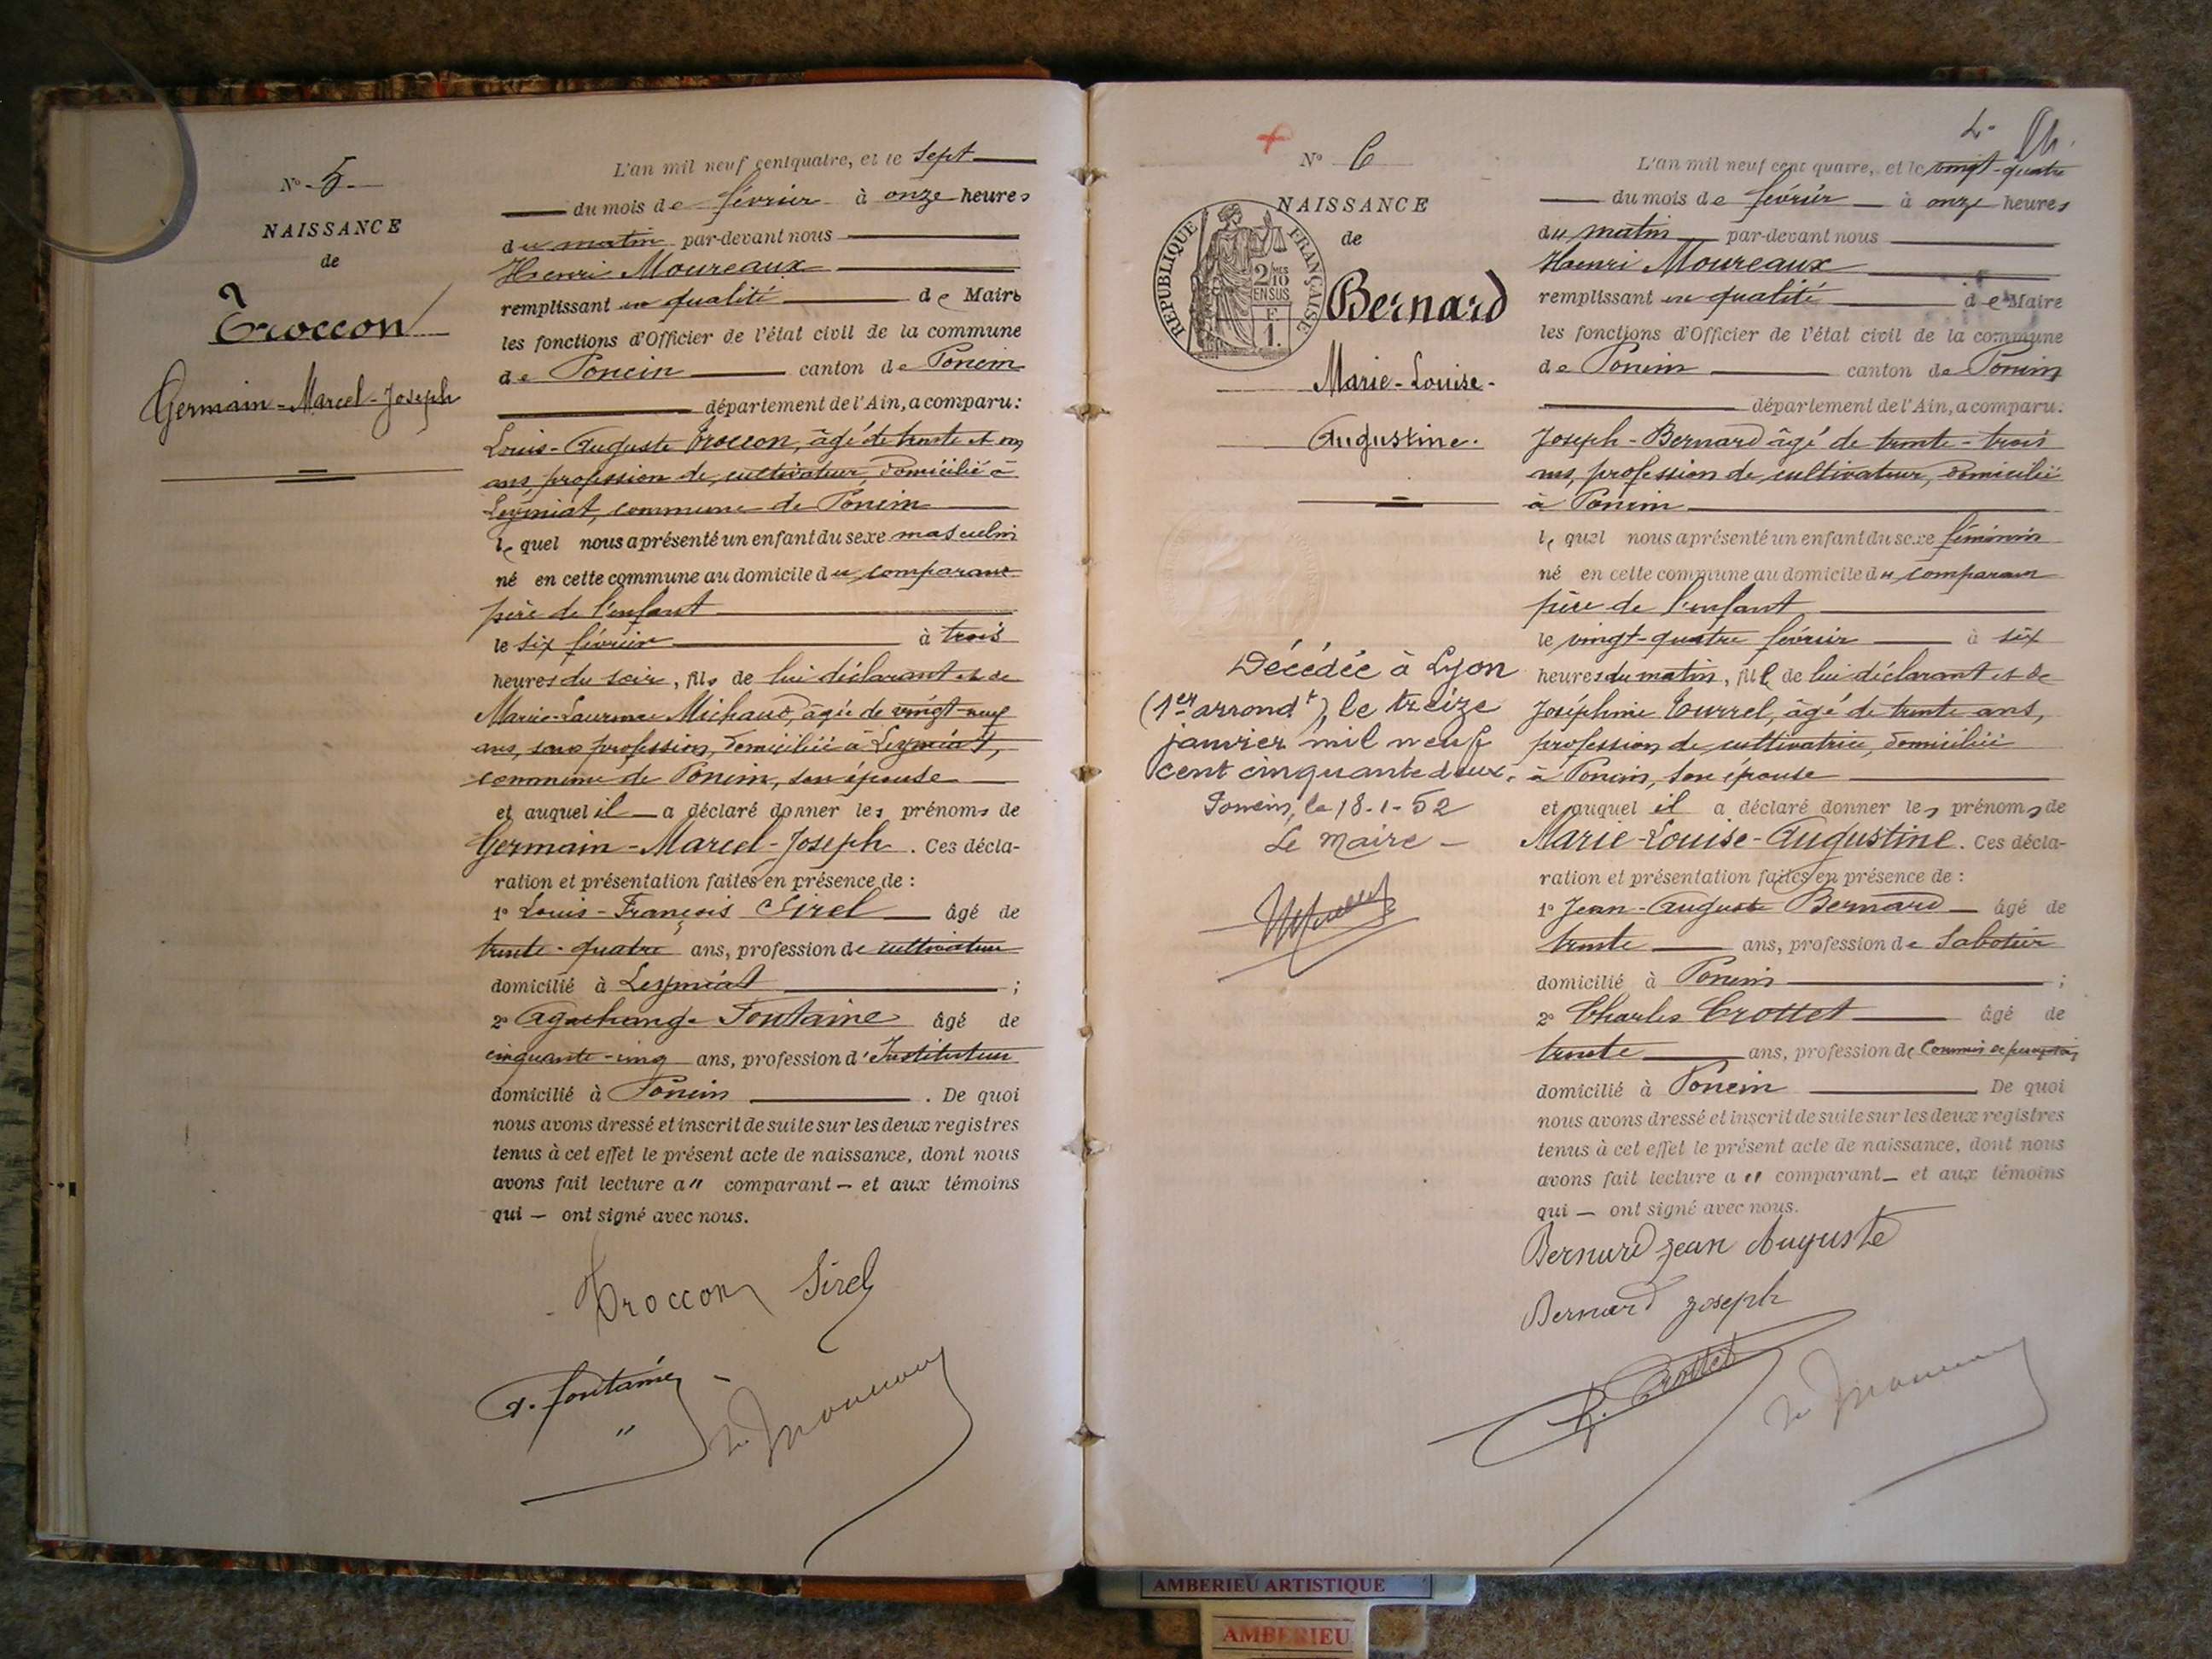 N° 5
NAISSANCE
de
Troccon
Germain-Marcel-Joseph
L'an mil neuf cent quatre, et le sept
du mois de février à onze heures
du matin par-devant nous
Henri Moureaux
remplissant en qualité de Maire
les fonctions d'Officier de l'état civil de la commune
de Poncin canton de Poncin
département de l'Ain, a comparu:
Louis-Auguste Troccon, âgé de trente et un
ans, profession de cultivateur, domicilié à
Leymiat, commune de Poncin
le quel nous a présenté un enfant du sexe masculin
né en cette commune au domicile du comparant
père de l'enfant
le six février à trois
heures du soir, fils de lui déclarant et de
Marie-Laurence Michaud, âgée de vingt-neuf
ans, sans profession, domiciliée à Leymiat,
commune de Poncin, son épouse
et auquel il a déclaré donner les prénoms de
Germain-Marcel-Joseph. Ces décla-
ration et présentation faites en présence de :
1° Louis-François Sirel âgé de
trente-quatre ans, profession de cultivateur
domicilié à Leymiat ;
2° Agathange Fontaine âgé de
cinquante-cinq ans, profession d'Instituteur
domicilié à Poncin . De quoi
nous avons dressé et inscrit de suite sur les deux registres
tenus à cet effet le présent acte de naissance, dont nous
avons fait lecture au comparant et aux témoins
qui ont signé avec nous.
Troccon Sirel
A. fontaine
N° 6
NAISSANCE
de
RÉPUBLIQUE FRANÇAISE
2/10 MES
EN SUS
F.
1.
Bernard
Marie-Louise-
Augustine.
Décédée à Lyon
(1er arrondt), le treize
janvier mil neuf
cent cinquante deux.
Poncin, le 18-1-52
Le Maire -
L'an mil neuf cent quatre, et le vingt-quatre
du mois de février à onze heures
du matin par-devant nous
Henri Moureaux
remplissant en qualité de Maire
les fonctions d'Officier de l'état civil de la commune
de Poncin canton de Poncin
département de l'Ain, a comparu.
Joseph-Bernard âgé de trente-trois
ans, profession de cultivateur, domicilié
à Poncin
le quel nous a présenté un enfant du sexe féminin
né en cette commune au domicile du comparant
père de l'enfant
le vingt-quatre février à six
heures du matin, fille de lui déclarant et de
Joséphine Turrel, âgé de trente ans,
profession de cultivatrice, domiciliée
à Poncin, son épouse
et auquel il a déclaré donner les prénoms de
Marie-Louise-Augustine. Ces décla-
ration et présentation faites en présence de :
1° Jean-Auguste Bernard âgé de
trente ans, profession de Sabotier
domicilié à Poncin ;
2° Charles Crottet âgé de
trente ans, profession de Commis de perception
domicilié à Poncin De quoi
nous avons dressé et inscrit de suite sur les deux registres
tenus à cet effet le présent acte de naissance, dont nous
avons fait lecture au comparant et aux témoins
qui ont signé avec nous.
Bernard jean Auguste
Bernard joseph
Crottet
AMBERIEU ARTISTIQUE
AMBERIEU